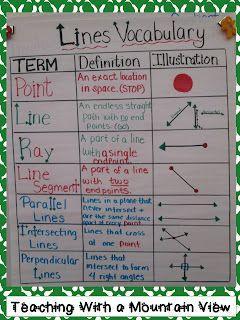 Lines Vocabulary
TERM
Definition
Illustration
Point
An exact location
in space. (STOP)
Line
An endless straght
path with no end
points. (GO)
Ray
A part of a line
with a single
endpoint
Line
Segment
A part of a line
with two
end points.
Parallel
Lines
Lines in a plane that
never intersect +
are the same distance
apart at every point
Intersecting
Lines
Lines that cross
at one point
Perpendicular
Lines
Lines that
intersect to form
4 right angles
Teaching With a Mountain View